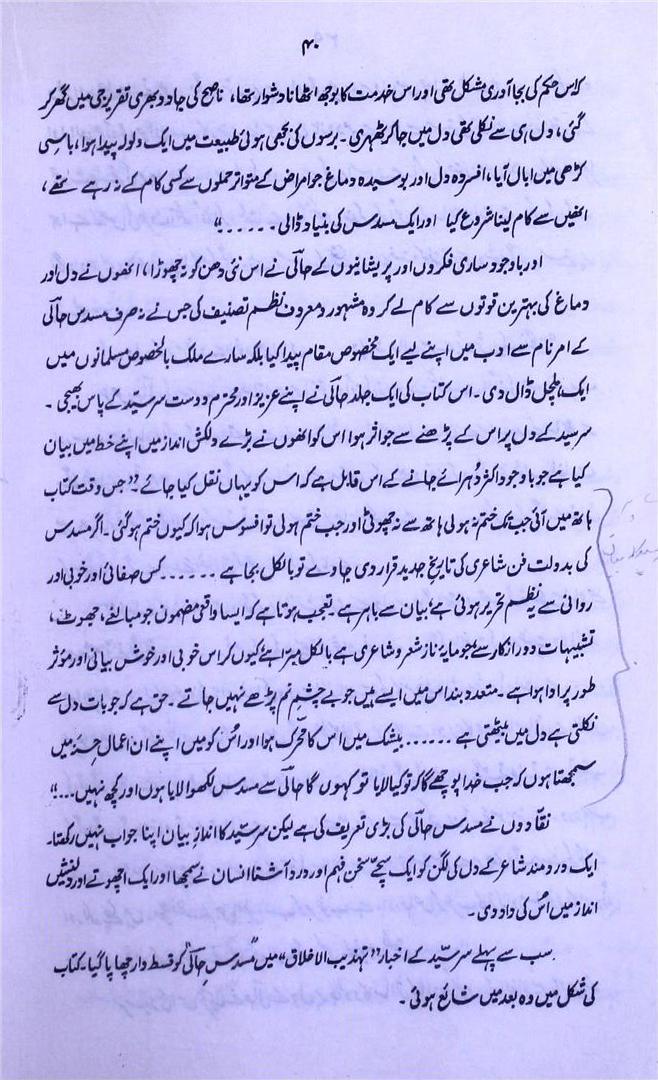 ۴۰
کہ اس حکم کی بجا آوری مشکل تھی اور اس خدمت کا بوجھ اٹھانا دشوار تھا، ناصح کی جادو بھری تقریر جی میں گھر کر
گئی، دل ہی سے نکلی تھی دل میں جا کر ٹھہری ۔ برسوں کی بجھی ہوئی طبیعت میں ایک ولولہ پیدا ہوا، باسی
کڑھی میں ابال آیا، افسردہ دل اور بوسیدہ دماغ جو امراض کے متواتر حملوں سے کسی کام کے نہ رہے تھے،
انھیں سے کام لینا شروع کیا اور ایک مسدس کی بنیاد ڈالی ۔ ۔ ۔ ۔ ۔"
اور باوجود ساری فکروں اور پریشانیوں کے حالؔی نے اس نئی دھن کو نہ چھوڑا، انھوں نے دل اور
دماغ کی بہترین قوتوں سے کام لے کر وہ مشہور و معروف نظم تصنیف کی جس نے نہ صرف مسدس حالؔی
کے امر نام سے ادب میں اپنے لیے ایک مخصوص مقام پیدا کیا بلکہ سارے ملک بالخصوص مسلمانوں میں
ایک ہلچل ڈال دی ۔ اس کتاب کی ایک جلد حالؔی نے اپنے عزیز اور محترم دوست سرسیّد کے پاس بھیجی ۔
سرسید کے دل پر اس کے پڑھنے سے جو اثر ہوا اس کو انھوں نے بڑے دلکش انداز میں اپنے خط میں بیان
کیا ہے جو باوجود اکثر دُہرائے جانے کے اس قابل ہے کہ اس کو یہاں نقل کیا جائے ۔ "جس وقت کتاب
ہاتھ میں آئی جب تک ختم نہ ہولی ہاتھ سے نہ چھوٹی اور جب ختم ہوئی تو افسوس ہوا کہ کیوں ختم ہو گئی ۔ اگر مسدس
کی بدولت فن شاعری کی تاریخِ جدید قرار دی جاوے تو بالکل بجا ہے ۔ ۔ ۔ ۔ ۔ ۔ کس صفائی اور خوبی اور
روانی سے یہ نظم تحریر ہوئی ہے، بیان سے باہر ہے ۔ تعجب ہوتا ہے کہ ایسا واقعی مضمون جو مبالغے، جھوٹ،
تشبیہات دور از کار سے جو مایۂ ناز شعر و شاعری ہے بالکل مبرّا ہے کیوں کر اس خوبی اور خوش بیانی اور مؤثر
طور پر ادا ہوا ہے ۔ متعدد بند اس میں ایسے ہیں جو بے چشمِ نم پڑھے نہیں جاتے ۔ حق ہے کہ جو بات دل سے
نکلتی ہے دل میں بیٹھتی ہے ۔ ۔ ۔ ۔ ۔ ۔ بیشک میں اس کا محرّک ہوا اور اُس کو میں اپنے ان اعمال حسنہ میں
سمجھتا ہوں کہ جب خدا پوچھے گا کہ تو کیا لایا تو کہوں گا حالؔی سے مسدس لکھوا لایا ہوں اور کچھ نہیں ۔ ۔ ۔"
نقادوں نے مسدس حالؔی کی بڑی تعریف کی ہے لیکن سرسیّد کا اندازِ بیان اپنا جواب نہیں رکھتا ۔
ایک دردمند شاعر کے دل کی لگن کو ایک سچے سخن فہم اور درد آشنا انسان نے سمجھا اور ایک اچھوتے اور دلنشیں
انداز میں اُس کی داد دی ۔
سب سے پہلے سرسیّد کے اخبار "تہذیب الاخلاق" میں "مسدس حالؔی" کو قسط وار چھاپا گیا ۔ کتاب
کی شکل میں وہ بعد میں شائع ہوئی ۔